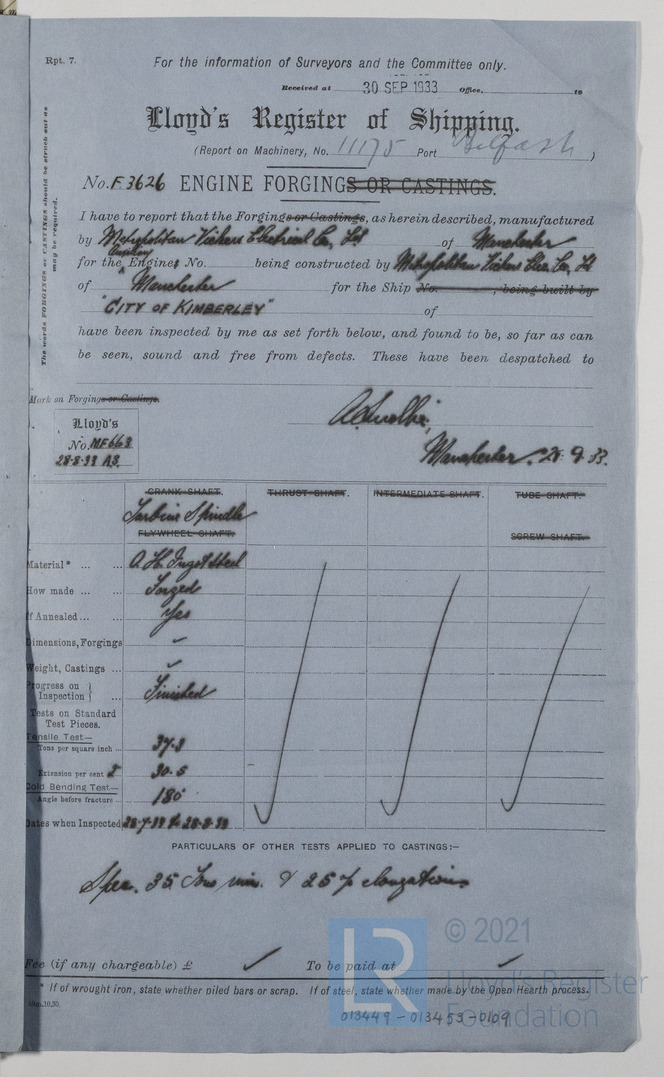 Rpt. 7.
For the information of Surveyors and the Committee only.
Received at 30 SEP 1933 Office, to
Lloyd's Register of Shipping.
(Report on Machinery, No. 11175 Port Belfast )
No. F. 3626 ENGINE FORGINGS OR CASTINGS.
I have to report that the Forgings or Castings, as herein described, manufactured
by Metropolitan Vickers Electrical Co., Ltd of Manchester
for the Auxiliary Engines No. being constructed by Metropolitan Vickers Elec. Co., Ld
of Manchester for the Ship No. , being built by
"CITY OF KIMBERLEY" of
have been inspected by me as set forth below, and found to be, so far as can
be seen, sound and free from defects. These have been despatched to
The words FORGINGS or CASTINGS should be struck out as
may be required.
Mark on Forgings or Castings.
Lloyd's
No. MF 663
28-8-33 AS.
Manchester. 28. 9. 33.
CRANK SHAFT. THRUST SHAFT. INTERMEDIATE SHAFT. TUBE SHAFT.
Turbine Spindle
FLYWHEEL SHAFT. SCREW SHAFT.
Material* ... ... O. H. Ingot Steel
How made ... ... Forged
If Annealed ... ... Yes
Dimensions, Forgings
Weight, Castings ...
Progress on } Finished
Inspection } ...
Tests on Standard
Test Pieces.
Tensile Test—
Tons per square inch ... 37.3
Extension per cent 30.5
Cold Bending Test—
Angle before fracture ... 180°
Dates when Inspected 28-7-33 to 28-8-33
PARTICULARS OF OTHER TESTS APPLIED TO CASTINGS:—
Spec. 35 Tons min. & 25% elongations
Fee (if any chargeable) £ To be paid at
* If of wrought iron, state whether piled bars or scrap. If of steel, state whether made by the Open Hearth process.
013449 - 013453 - 0109
LR
© 2021
Lloyd's Register
Foundation